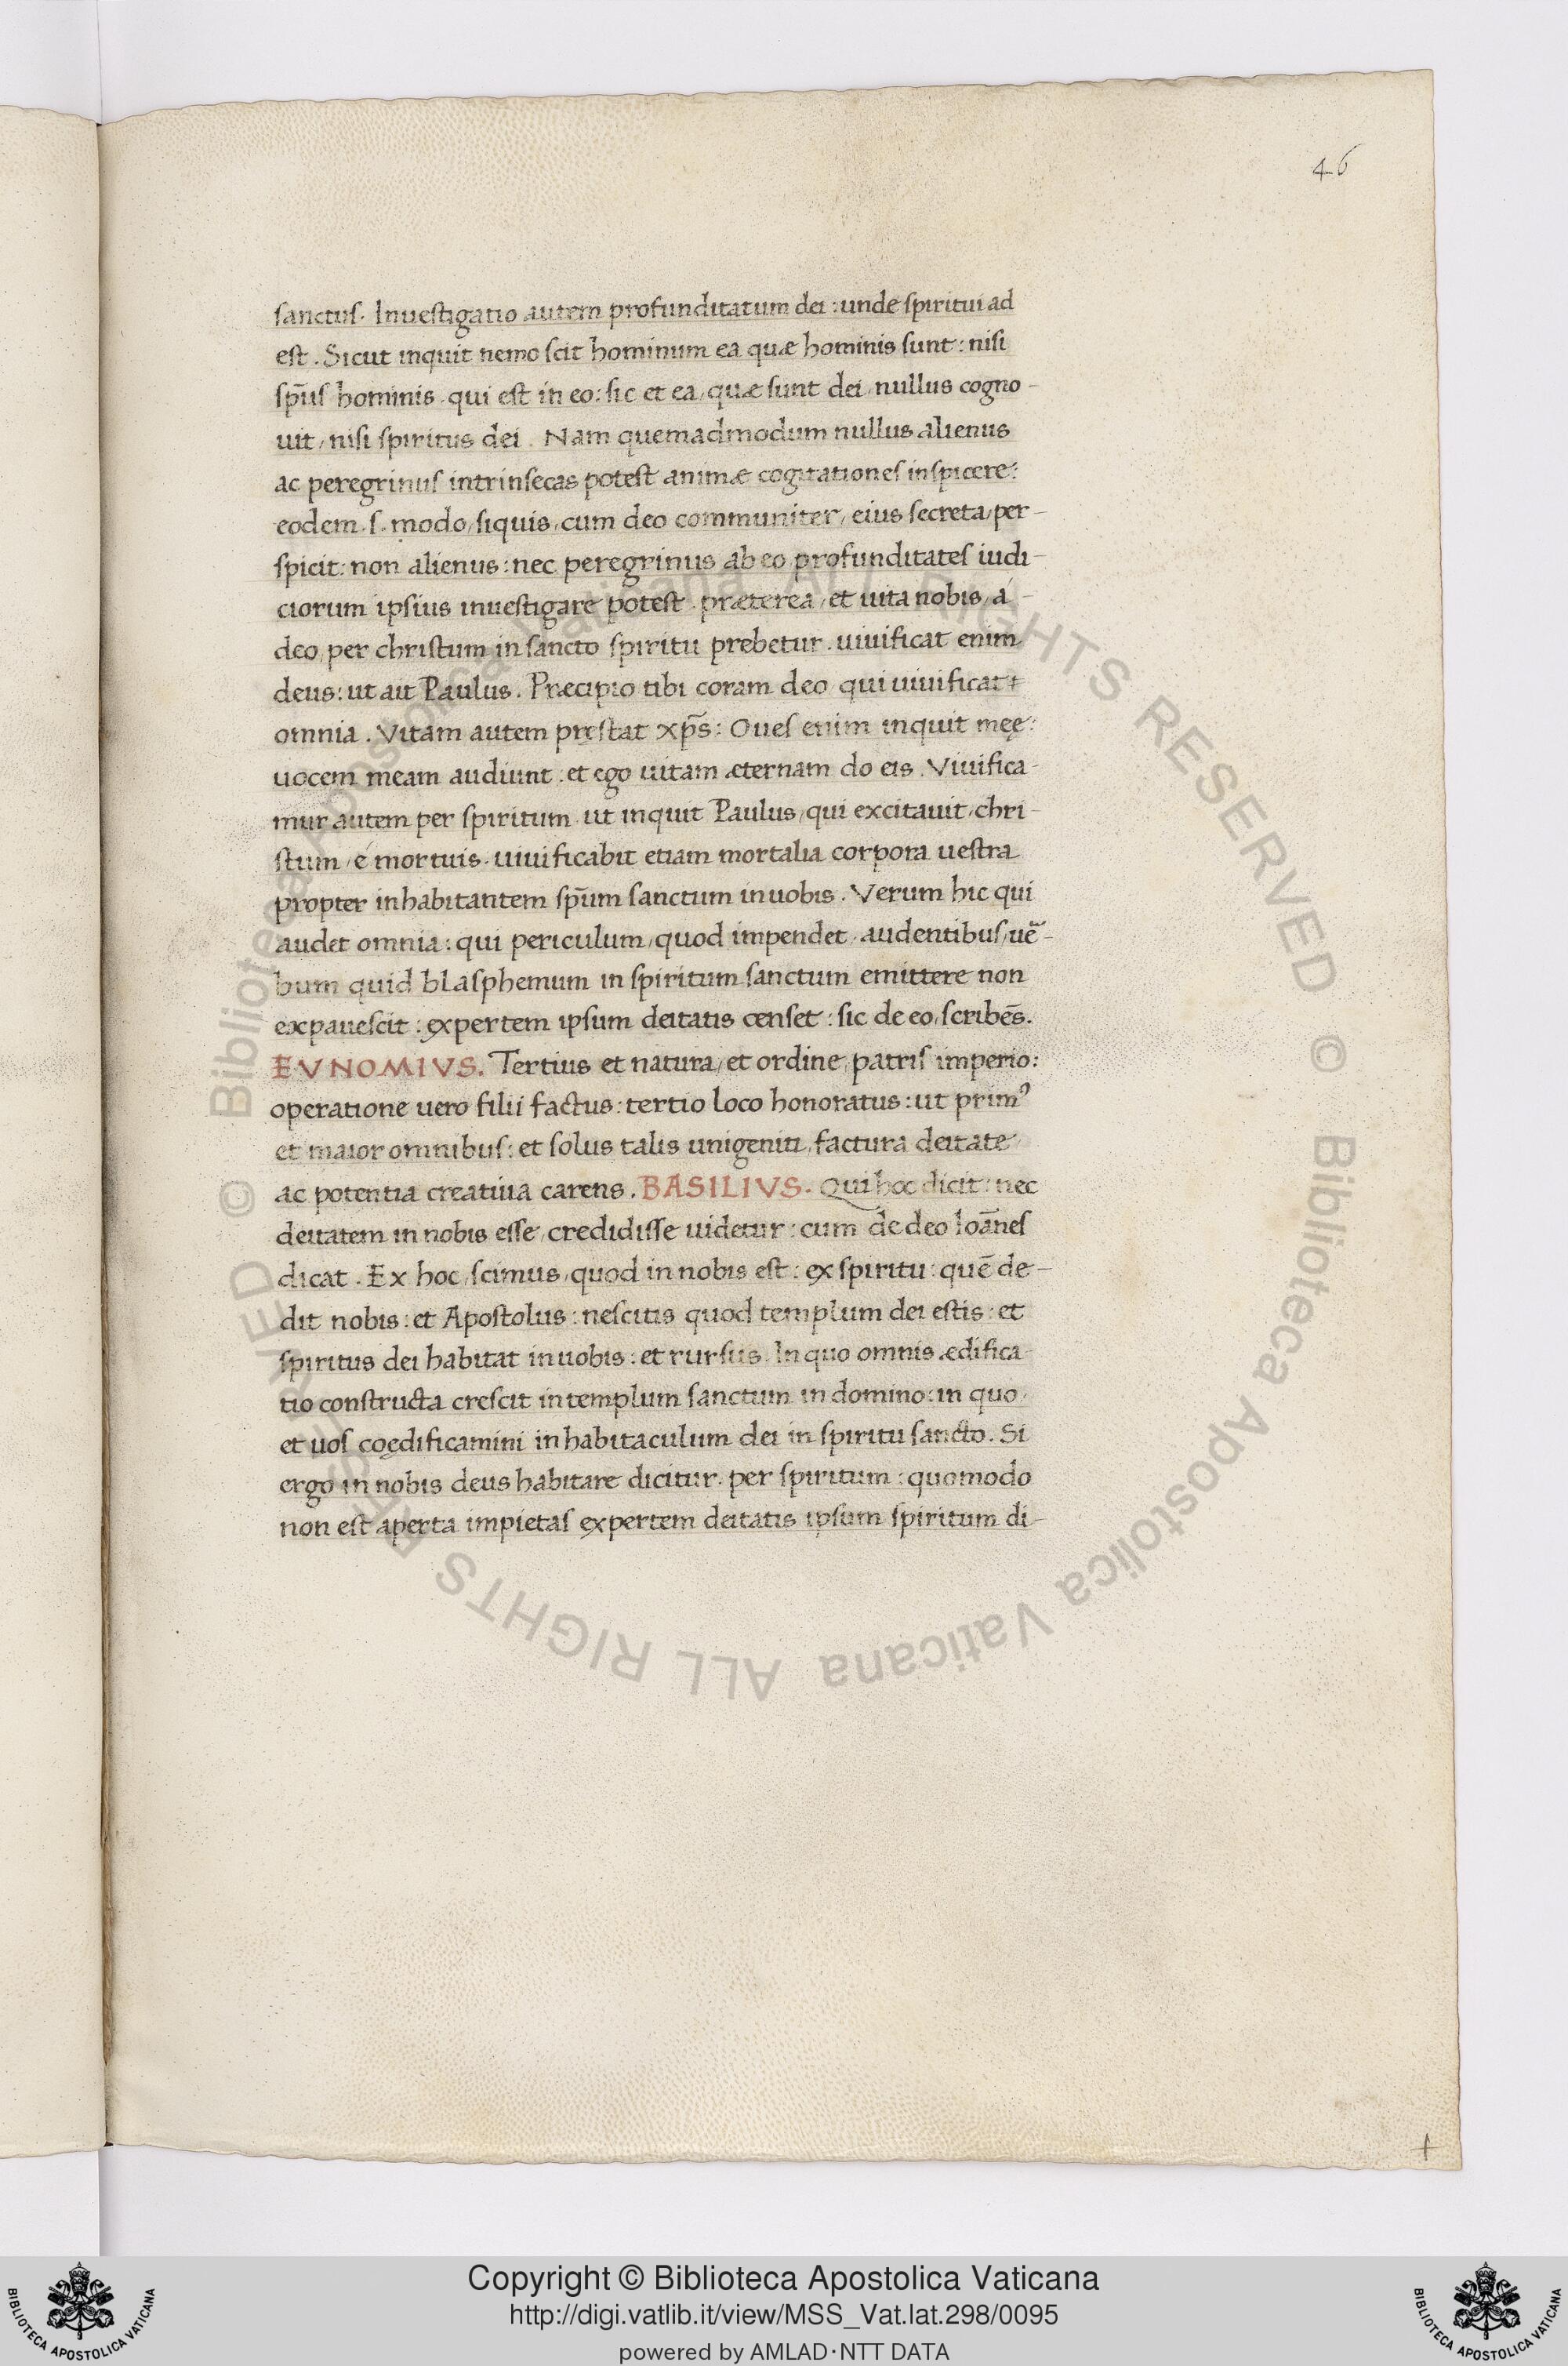 46
sanctus. Inuestigatio autem profunditatum dei: unde spiritui ad
est. Sicut inquit nemo scit hominum ea quæ hominis sunt: nisi
sp̄us hominis. qui est in eo: sic et ea, quæ sunt dei, nullus cogno-
uit, nisi spiritus dei. Nam quemadmodum nullus alienus
ac peregrinus intrinsecas potest animæ cogitationes inspicere:
eodem .s. modo, siquis, cum deo communiter, eius secreta, per-
spicit: non alienus: nec peregrinus ab eo profunditates iudi-
ciorum ipsius inuestigare potest. præterea, et uita nobis, á-
deo, per christum in sancto spiritu prebetur. uiuificat enim
deus: ut ait Paulus. Præcipio tibi coram deo qui uiuificat
omnia. Vitam autem pręstat xp̄s: Oues enim inquit meę:
uocem meam audiunt. et ego uitam æternam do eis. Viuifica-
mur autem per spiritum. ut inquit Paulus, qui excitauit, chri-
stum, é mortuis. uiuificabit etiam mortalia corpora uestra
propter inhabitantem sp̄um sanctum in uobis. Verum hic qui
audet omnia: qui periculum, quod impendet, audentibus, uē-
bum quid blasphemum in spiritum sanctum emittere non
expauescit: expertem ipsum deitatis censet: sic de eo, scribēs.
EVNOMIVS. Tertius et natura, et ordine, patris imperio:
operatione uero filii factus: tertio loco honoratus: ut primꝰ
et maior omnibus: et solus talis unigeniti, factura deitate
ac potentia creatiua carens. BASILIVS. Qui hoc dicit: nec
deitatem in nobis esse, credidisse uidetur: cum de deo Ioānes
dicat. Ex hoc, scimus, quod in nobis est: ex spiritu: quē de-
dit nobis: et Apostolus: nescitis quod templum dei estis: et
spiritus dei habitat in uobis: et rursus. In quo omnis ædifica-
tio constructa crescit in templum sanctum in domino: in quo,
et uos coędificamini in habitaculum dei in spiritu sancto. Si
ergo in nobis deus habitare dicitur. per spiritum: quomodo
non est aperta impietas expertem deitatis ipsum spiritum di-
© Biblioteca Apostolica Vaticana ALL RIGHTS RESERVED © Biblioteca Apostolica Vaticana ALL RIGHTS RESERVED
Copyright © Biblioteca Apostolica Vaticana
http://digi.vatlib.it/view/MSS_Vat.lat.298/0095
powered by AMLAD·NTT DATA
BIBLIOTECA APOSTOLICA VATICANA
BIBLIOTECA APOSTOLICA VATICANA